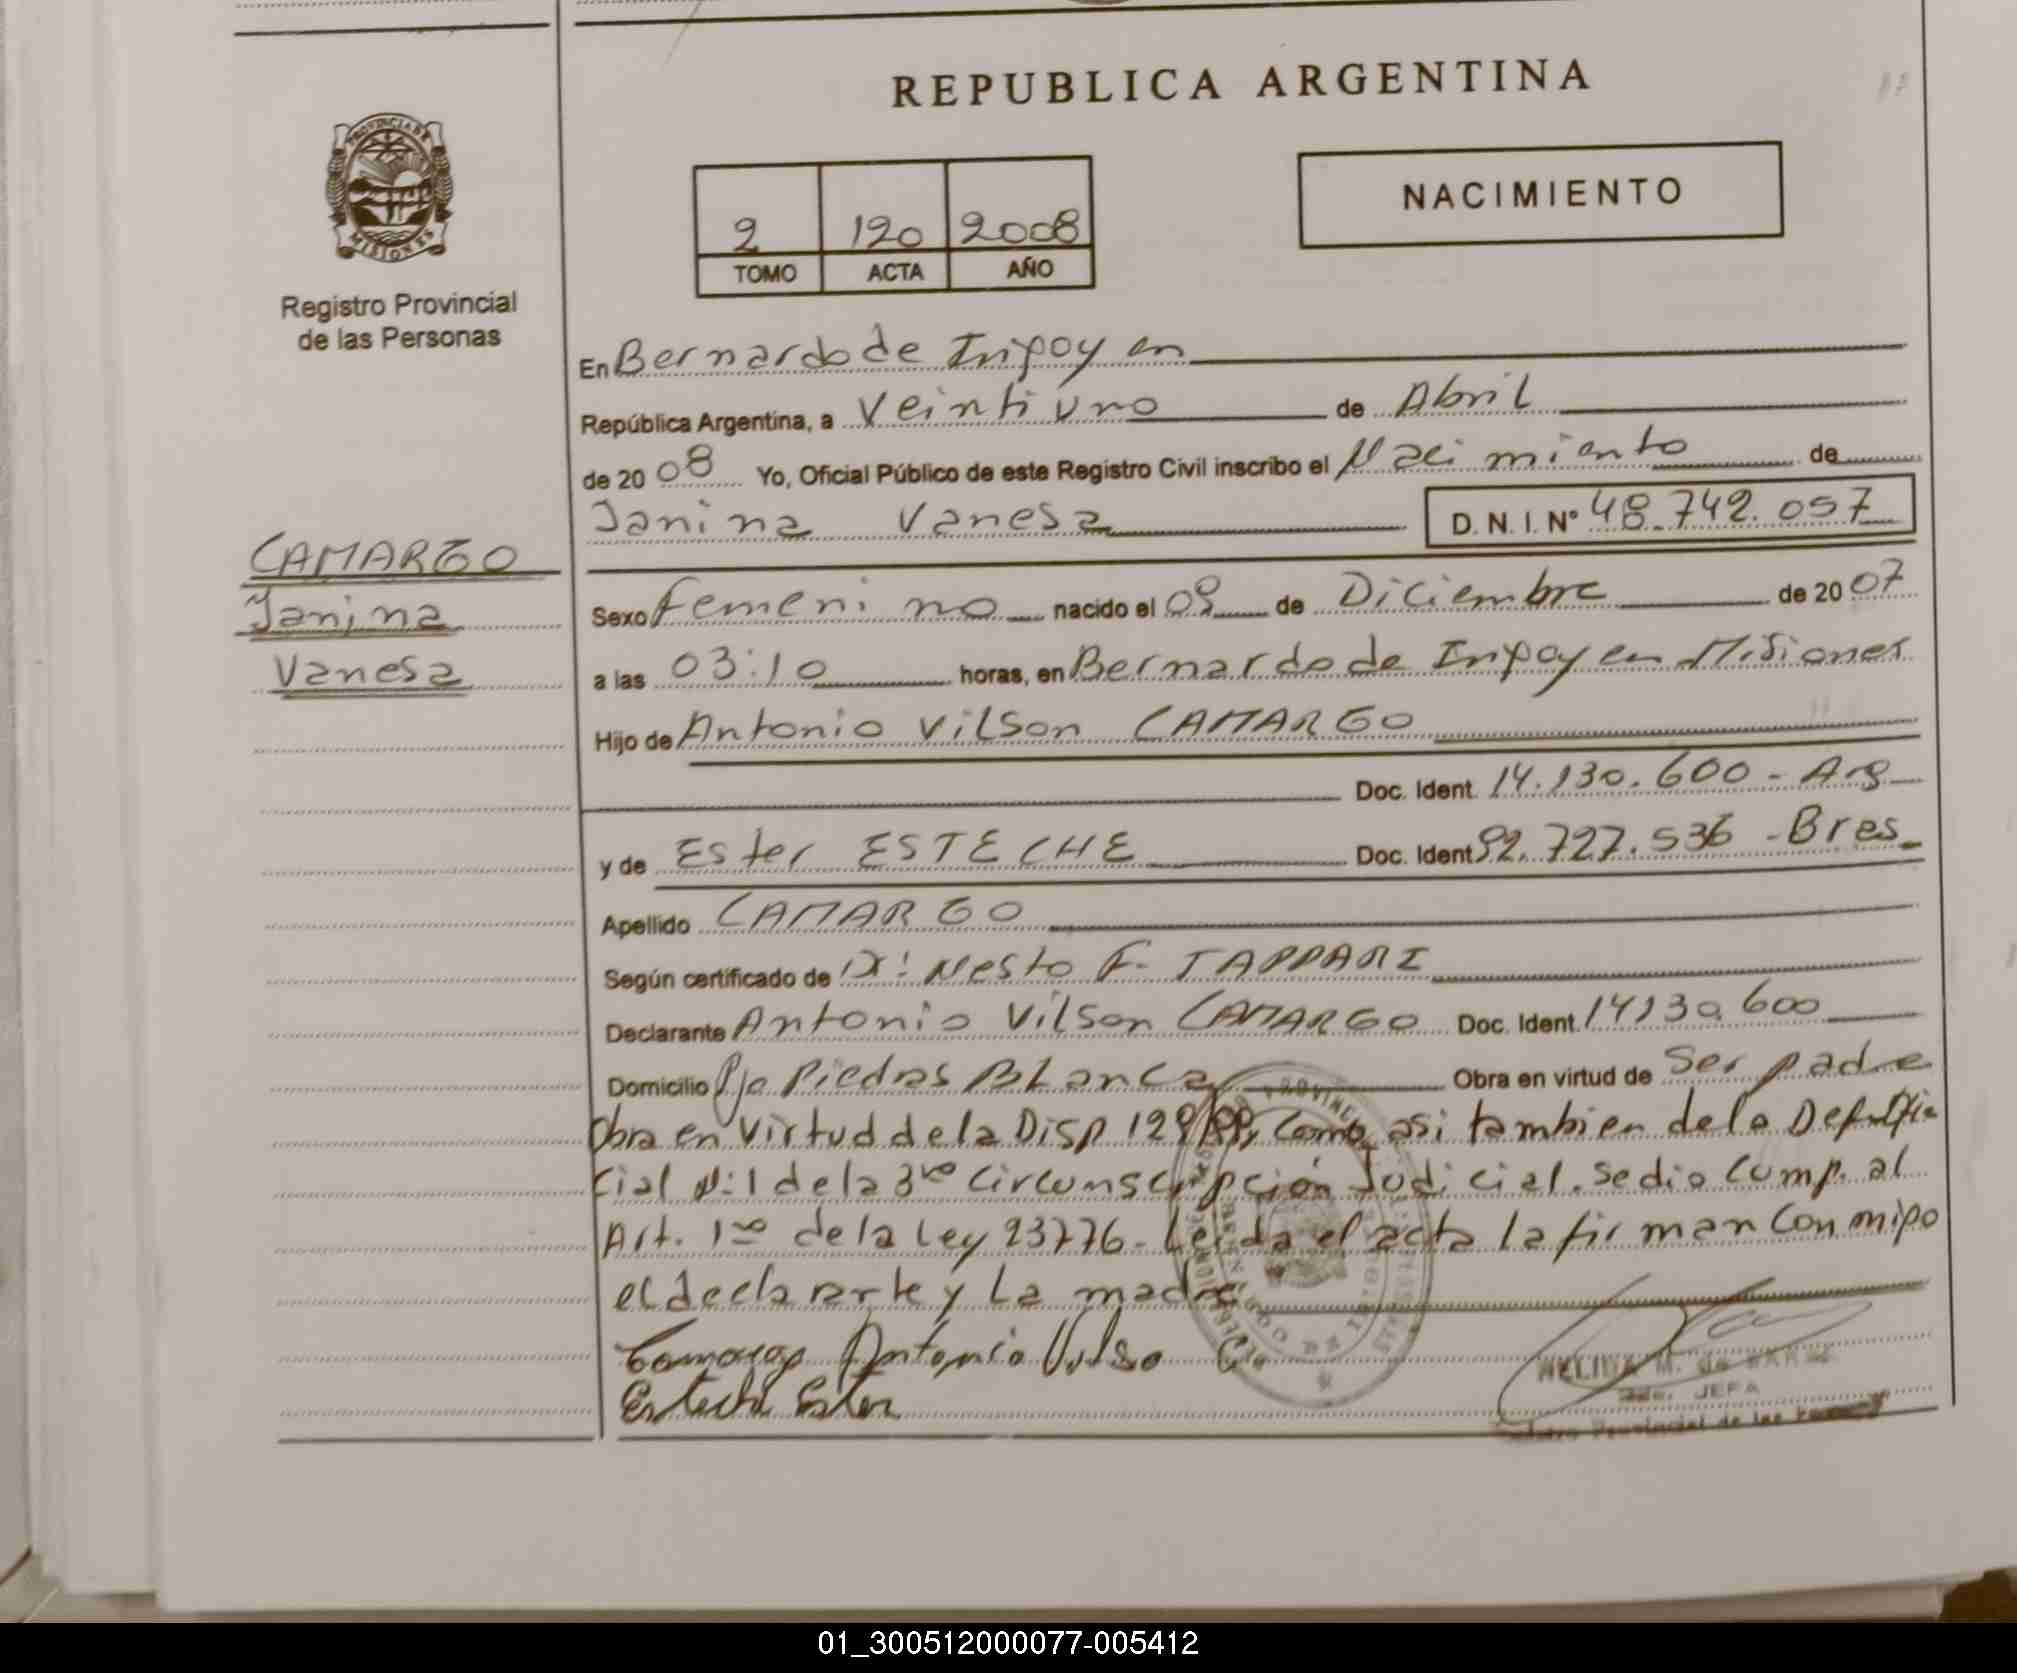 REPUBLICA ARGENTINA
PROVINCIA DE
MISIONES
Registro Provincial
de las Personas
NACIMIENTO
2 120 2008
TOMO ACTA AÑO
En Bernardo de Iripoyen
República Argentina, a Veintiuno de Abril
de 2008 Yo, Oficial Público de este Registro Civil inscribo el Nacimiento de
Janina Vanesa D. N. I. Nº 48.742.057
CAMARGO
Janina
Vanesa
Sexo Femenino nacido el 09 de Diciembre de 2007
a las 03:10 horas, en Bernardo de Iripoyen Misiones
Hijo de Antonio Vilson CAMARGO
Doc. Ident. 14.130.600 - Arg
y de Ester ESTECHE Doc. Ident 92.727.536 - Bres.
Apellido CAMARGO
Según certificado de Dr: Nesto F. TAPPARI
Declarante Antonio Vilson CAMARGO Doc. Ident. 14130.600
Domicilio Pje Piedras Blanca Obra en virtud de Ser padre
Obra en Virtud de la Disp 129/99, Como asi tambien de la Def. Ofi
cial N:1 de la 3ra Circunscripción Judicial. Se dio Cump. al
Art. 1ro de la Ley 23776. Leida el acta la firman Con mipo
el declarante y La madre
Camargo Antonio Vilso
Esteche Ester
JEFA
Provincial de las
01_300512000077-005412